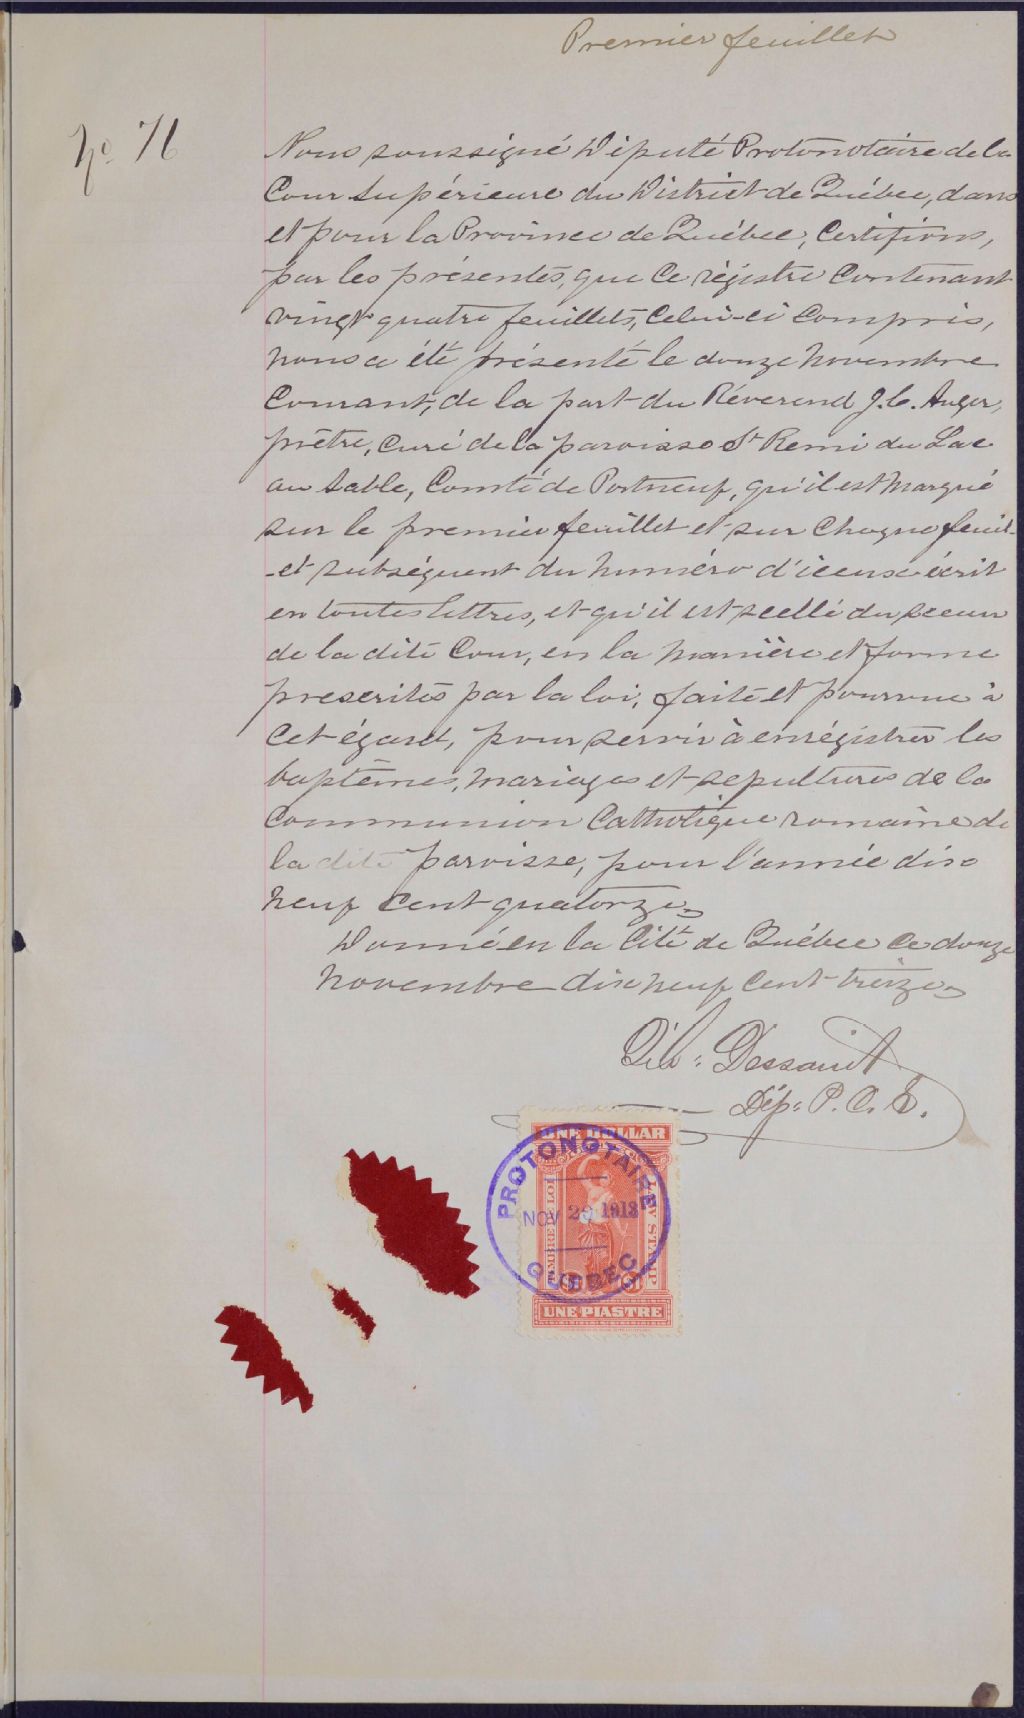 Premier feuillet
No. 76
Nous soussigné Député Protonotaire de la
Cour Supérieure du District de Québec, dans
et pour la Province de Québec, Certifions,
par les présentes, que ce régistre contenant
vingt quatre feuillets, celui-ci compris,
nous a été présenté le douze novembre
courant, de la part du Révérend J. C. Auger,
prêtre, curé de la paroisse St Remi du Lac
au Sable, Comté de Portneuf, qu'il est marqué
sur le premier feuillet et sur chaque feuil-
-et subséquent du numéro d'iceux écrit
en toutes lettres, et qu'il est scellé du sceau
de la dite Cour, en la manière et forme
prescrites par la loi, faite et pourvue à
cet égard, pour servir à enrégistrer les
baptêmes, mariages et sepultures de la
Communion Catholique romaine de
la dite paroisse, pour l'année dix
neuf cent quatorze
Donné en la Cité de Québec ce douze
novembre dix neuf cent treize
Dessault
Dép. P. C. S.
ONE DOLLAR
TIMBRE DE LOI
LAW STAMP
UNE PIASTRE
PROTONOTAIRE
NOV 20 1913
QUEBEC